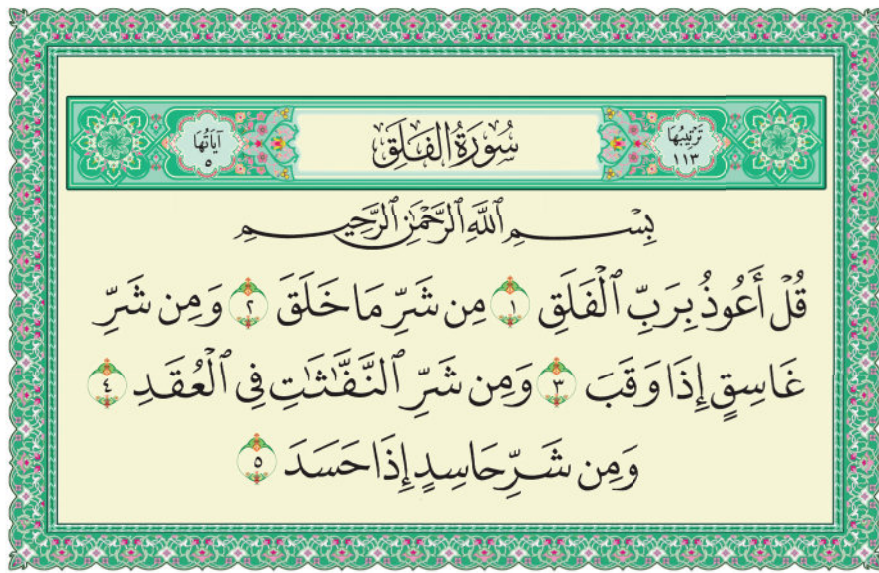 ترتيبها ١١٣ سُورَةُ الفَلَقِ آياتها ٥
بِسْمِ ٱللَّهِ ٱلرَّحْمَٰنِ ٱلرَّحِيمِ
قُلْ أَعُوذُ بِرَبِّ ٱلْفَلَقِ ١ مِن شَرِّ مَا خَلَقَ ٢ وَمِن شَرِّ
غَاسِقٍ إِذَا وَقَبَ ٣ وَمِن شَرِّ ٱلنَّفَّٰثَٰتِ فِى ٱلْعُقَدِ ٤
وَمِن شَرِّ حَاسِدٍ إِذَا حَسَدَ ٥